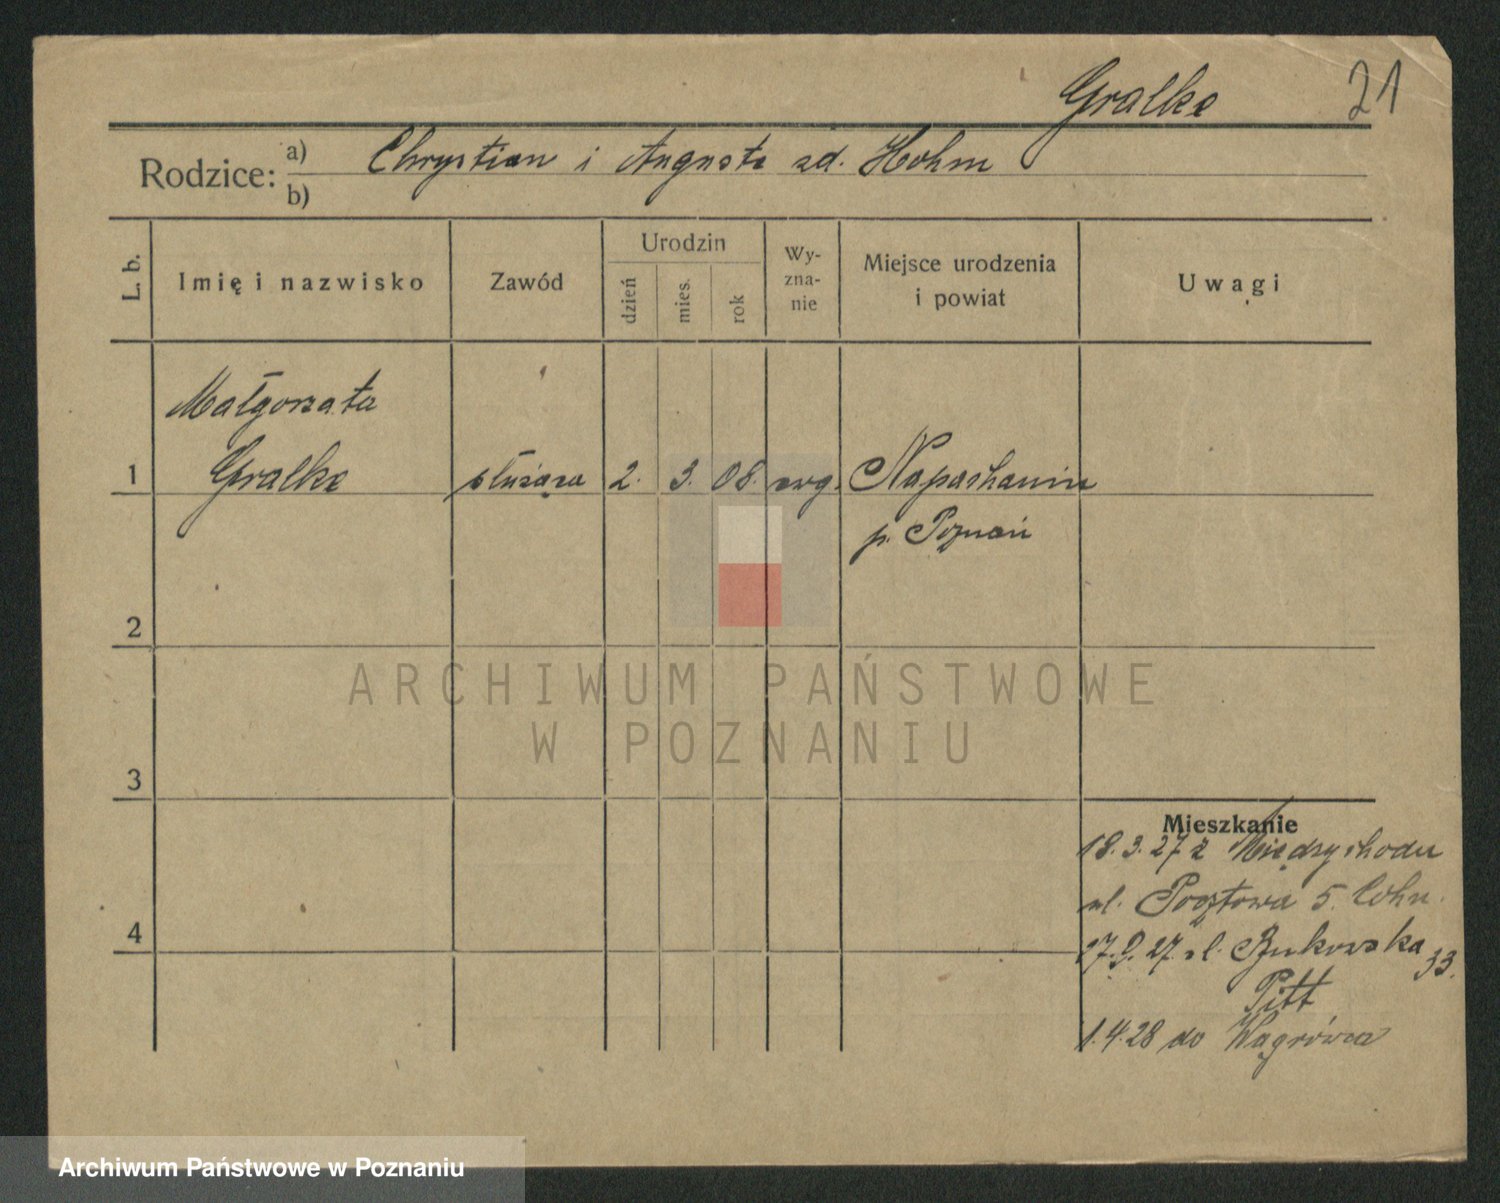 Gralke 21
Rodzice: a) Chrystian i Augusta zd. Hohm
b)
L. b. Imię i nazwisko Zawód Urodzin dzień mies. rok Wy-zna-nie Miejsce urodzenia i powiat Uwagi
Małgorzata
1 Gralke służąca 2. 3. 08. ewg. Napachanin
p. Poznań
2
ARCHIWUM PAŃSTWOWE
W POZNANIU
3
Mieszkanie
18.3.27 z Międzychodu
ul. Pocztowa 5. Cohn.
4
17.9.27. ul. Bukowska 33.
Pitt
1.4.28 do Wągrówca
Archiwum Państwowe w Poznaniu